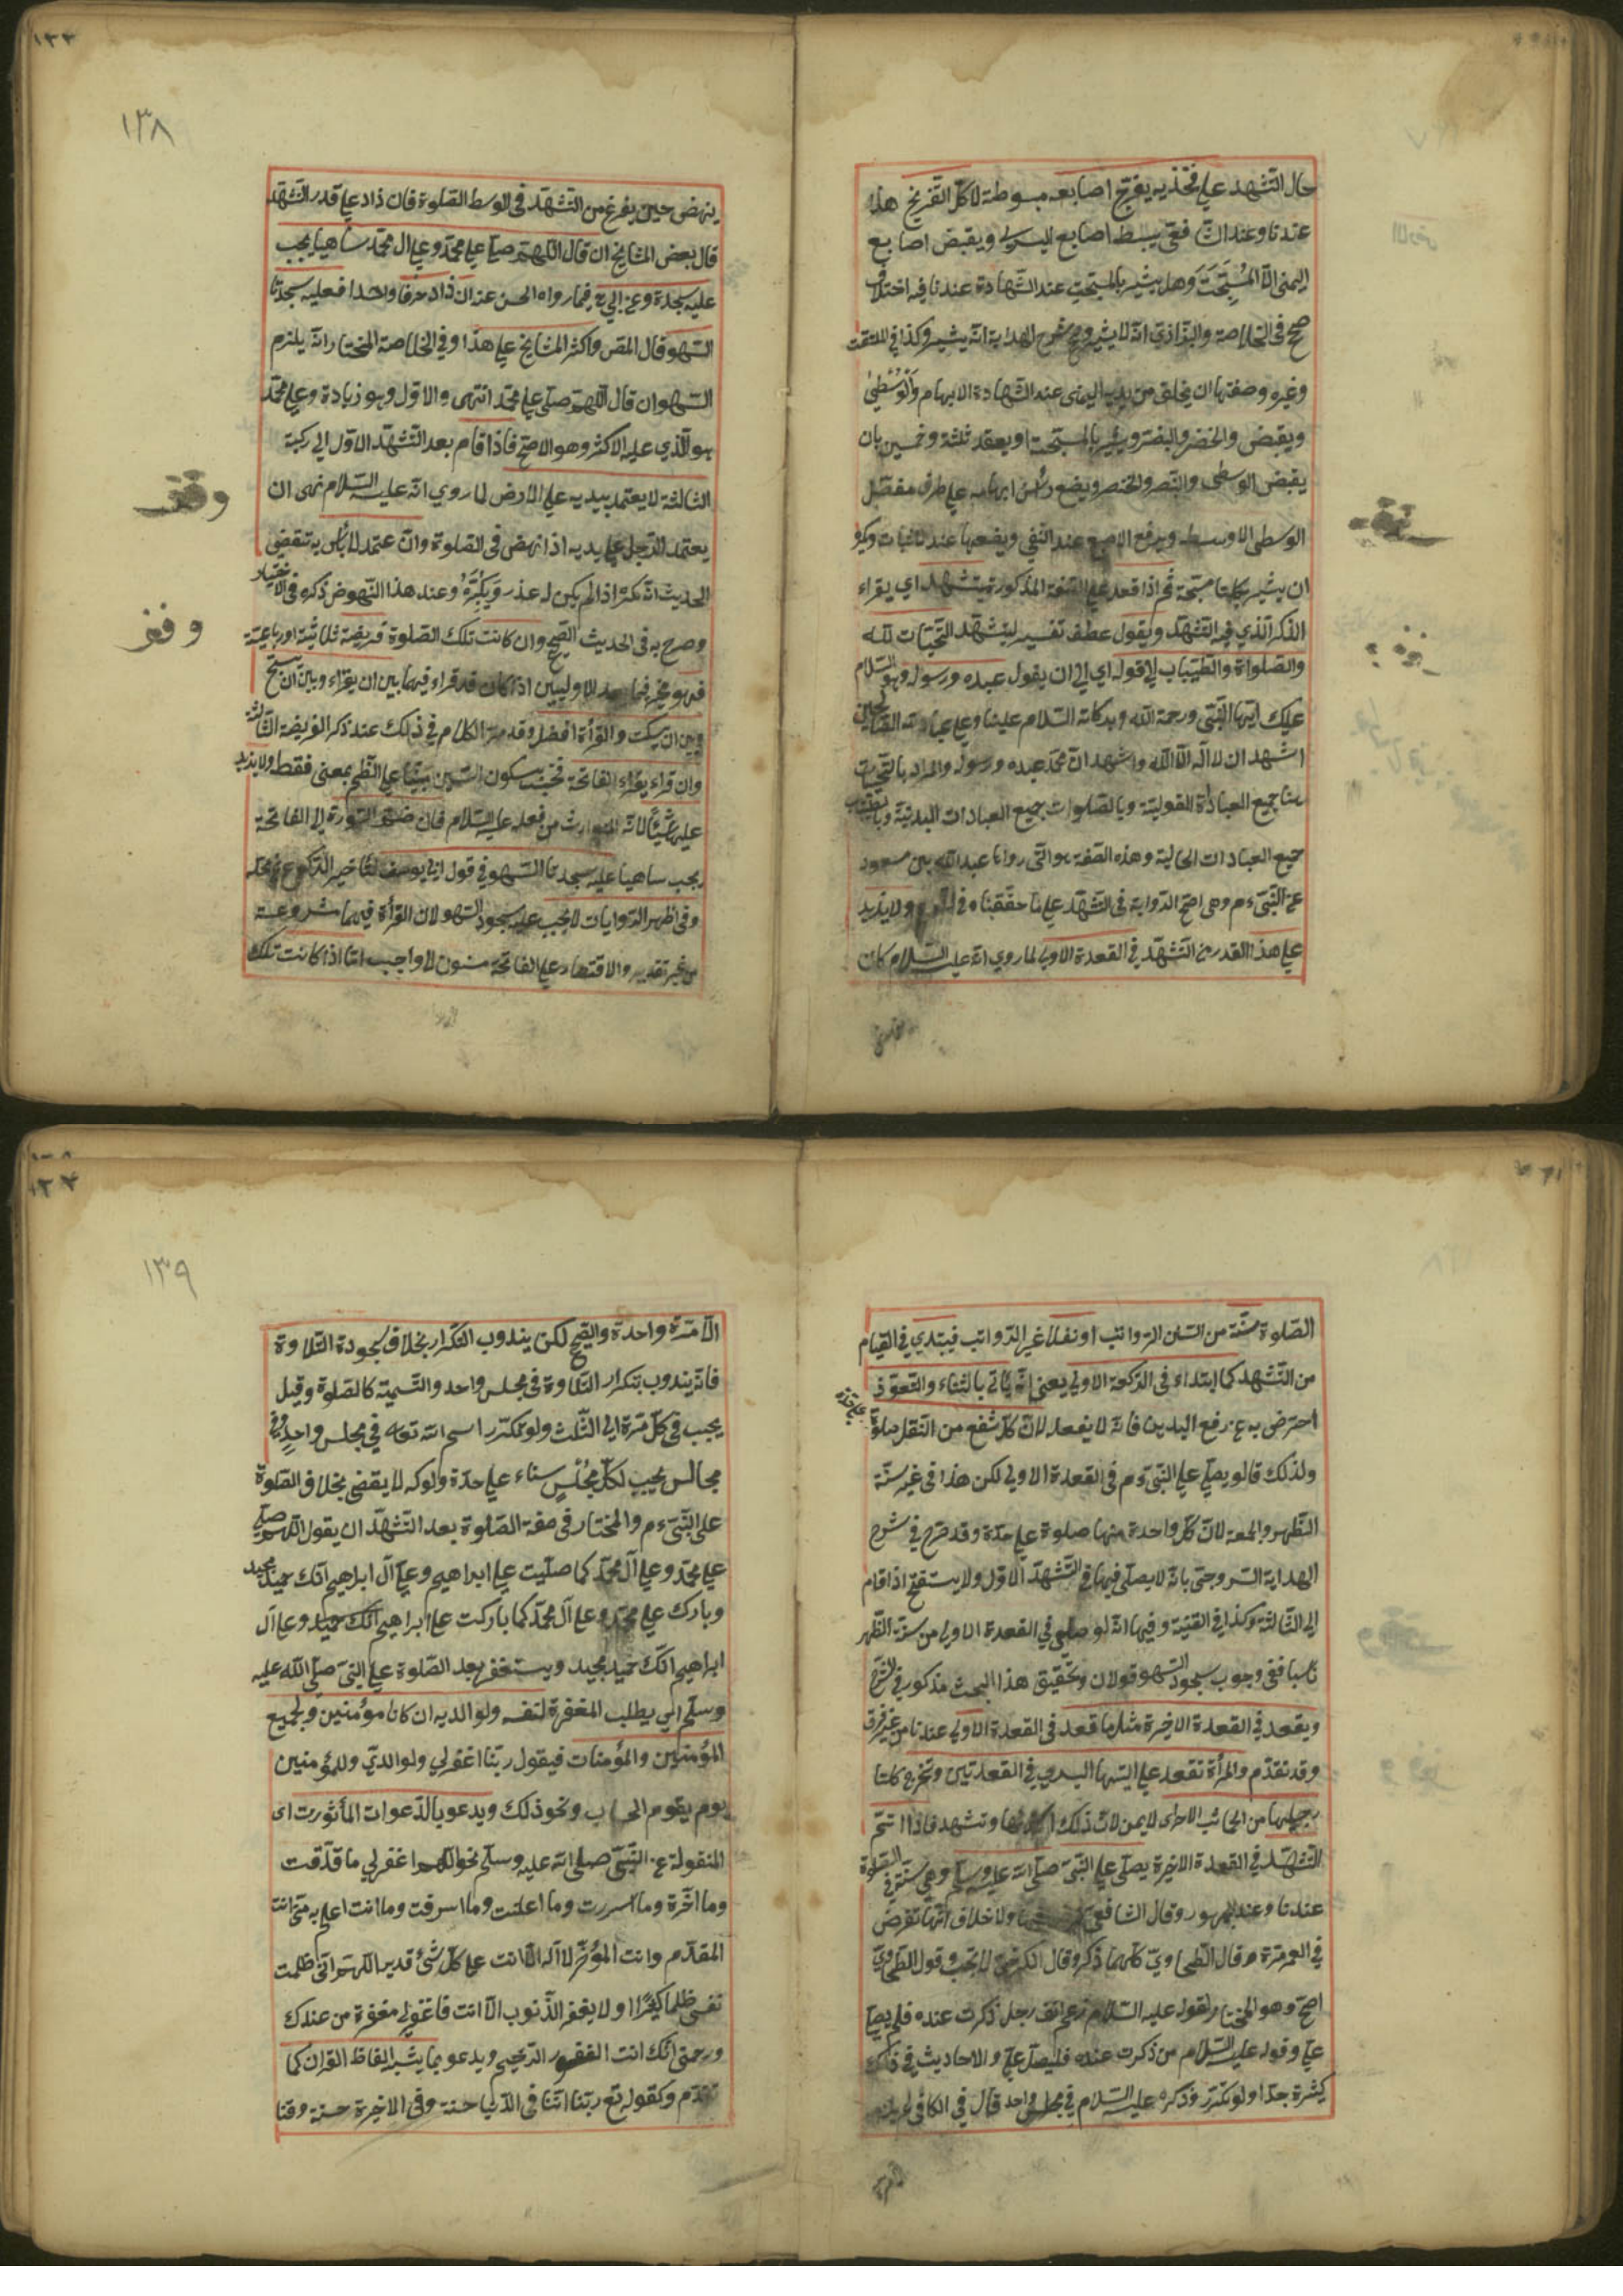 حال التشهد علي فخذيه يفرج اصابعه مبسوطة لا كل التفريج هذا
عندنا وعند الشافعي يبسط اصابع اليسرى ويقبض اصابع
اليمنى الا المسبحة وهل يشير بالمسبحة عند الشهادة عندنا فيه اختلاف
صحح في الخلاصة والبزازية انه لا يشير وصحح شرح الهداية انه يشير وكذا في الملتقط
وغيره وصفتها ان يحلق من يده اليمنى عند الشهادة الابهام والوسطى
ويقبض والخنصر والبنصر ويشير بالمسبحة او يعقد ثلثة وخمسين بان
يقبض الوسطى والبنصر والخنصر ويضع رأس ابهامه على طرف مفصل
الوسطى الاوسط ويرفع الاصبع عند النفي ويضعها عند الاثبات ويكره
ان يشير بكلتا مسبحتيه ثم اذا قعد على الصفة المذكورة يتشهد اي يقراء
الذكر الذي فيه التشهد ويقول عطف تفسير ليتشهد التحيات لله
والصلواة والطيبات الي قوله اي الي ان يقول عبده ورسوله وهو السلام
عليك ايها النبي ورحمة الله وبركاته السلام علينا وعلى عباد الله الصالحين
اشهد ان لا اله الا الله واشهد ان محمد عبده ورسوله والمراد بالتحيات
هنا جميع العبادات القولية وبالصلوات جميع العبادات البدنية وبالطيبات
جميع العبادات المالية وهذه الصفة هو التي رواها عبد الله بن مسعود
عن النبي ءم وهي اصح الرواية في التشهد على ما حققناه في الشرح ولا يزيد
علي هذا القدر من التشهد في القعدة الاولى لما روي انه عليه السلام كان
١٣٨
ينهض حين يفرغ من التشهد في الوسط الصلوة فان زاد علي قدر التشهد
قال بعض المشايخ ان قال اللهم صل علي محمد وعلي ال محمد ساهيا يجب
عليه سجدة وعن ابي ح فيما رواه الحسن عنه ان زاد حرفا واحدا فعليه سجدتا
السهو قال المص واكثر المشايخ علي هذا وفي الخلاصة المختار انه يلزم
السهو ان قال اللهم صلى علي محمد انتهى والاول وهو زيادة وعلى محمد
هو الذي عليه الاكثر وهو الاصح فاذا قام بعد التشهد الاول الي ركعة
الثالثة لا يعتمد بيديه علي الارض لما روي انه عليه السلام نهى ان
يعتمد الرجل علي يديه اذا نهض في الصلوة وان عتمد لا بأس به تقضي
الحديث انه يكره اذا لم يكن له عذر ويكبر وعند هذا النهوض ذكره في الاختيار
وصرح به في الحديث الصحيح وان كانت تلك الصلوة فريضة ثلاثية او رباعية
فهو مخير فيما بعد الاوليين اذا كان قد قراء فيهما بين ان يقراء وبين ان يسبح
وبين ان يسكت والقرأة افضل وقد مر الكلام في ذلك عند ذكر الفريضة الثالثة
وان قراء يقراء الفاتحة فحسب بسكون السين بمعنى فقط ولا يزيد
عليها شيئا لانه المتوارث من فعله عليه السلام فان ضم السورة الي الفاتحة
يجب ساهيا عليه سجدتا السهو في قول ابي يوسف لتأخير الركوع عن محله
وفي اظهر الروايات لا يجب عليه سجود السهو لان القرأة فيهما مشروعة
من غير تقدير والاقتصار على الفاتحة مسنون لا واجب اما اذا كانت تلك
وقف
وقف
الصلوة سنة من السنن الرواتب او نفلا غير الرواتب فيبتدي في القيام
من التشهد كما ابتداء في الركعة الاولى يعني انه يأتي بالثناء والتعوذ
احترض به عن رفع اليدين فانه لا يفعله لان كل شفع من النفل صلوة على حدة
ولذلك قالو يصلي علي النبي ءم في القعدة الاولى لكن هذا في غير سنة
الظهر والجمعة لان كل واحدة منها صلوة علي حدة وقد صرح في شرح
الهداية السروجي بانه لا يصلي فيها في التشهد الاول ولا يستفتح اذا قام
الي الثالثة وكذا في القنية وفيها انه لو صلى في القعدة الاولى من سنة الظهر
ناسيا ففي وجوب سجود السهو قولان وتحقيق هذا البحث مذكور في الشرح
ويقعد في القعدة الاخيرة مثل ما قعد في القعدة الاولى عندنا من غير فرق
وقد تقدم والمرأة تقعد علي اليتها اليسرى في القعدتين وتخرج كلتا
رجليها من الجانب الاخرى لايمن لان ذلك استر لها وتتشهد فاذا اتم
التشهد في القعدة الاخيرة يصلي علي النبي صلى الله عليه وسلم وهي سنة في الصلوة
عندنا وعند الجمهور وقال الشافعي ولا خلاف انها تفرض
في العمر مرة وقال الطحاوي كلما ذكر وقال الكرخي لا يجب وقول الطحاوي
اصح وهو المختار لقوله عليه السلام رغم انف رجل ذكرت عنده فلم يصل
علي وقوله عليه السلام من ذكرت عنده فليصل علي والاحاديث في ذلك
كثيرة جدا ولو تكرر ذكره عليه السلام في مجلس واحد قال في الكافي لم يلزمه
١٣٩
الا مرة واحدة والصحيح لكن يندوب التكرار بخلاف سجودة التلاوة
فانه يندوب بتكرار التلاوة في مجلس واحد والتسمية كالصلوة وقيل
يجب في كل مرة الي الثلث ولو تكرر اسم الله تعه في مجلس واحد وفي
مجالس يجب لكل مجلس سناء علي حدة ولو تركه لا يقضى بخلاف الصلوة
على النبي ءم والمختار في صفة الصلوة بعد التشهد ان يقول اللهم صلي
علي محمد وعلي آل محمد كما صليت علي ابراهيم وعلي آل ابراهيم انك حميد مجيد
وبارك علي محمد وعلي آل محمد كما باركت علي ابراهيم انك حميد وعلي آل
ابراهيم انك حميد مجيد ويستغفر بعد الصلوة علي النبي صلي الله عليه
وسلم اي يطلب المغفرة لنفسه ولوالديه ان كانا مؤمنين ولجميع
المؤمنين والمؤمنات فيقول ربنا اغفرلي ولوالدي وللمؤمنين
يوم يقوم الحساب ونحو ذلك ويدعو بالدعوات المأثورت اى
المنقولة عن النبي صلى الله عليه وسلم نحو اللهم اغفرلي ما قدمت
وما اخرة وما اسررت وما اعلنت وما اسرفت وما انت اعلم به مني انت
المقدم وانت المؤخر لا اله الا انت على كل شئ قدير اللهم اني ظلمت
نفسي ظلما كثيرا ولا يغفر الذنوب الا انت فاغفرلي مغفرة من عندك
ورحمني انك انت الغفور الرحيم ويدعو بما يشبه الفاظ القرآن كما
تقدم وكقوله تع ربنا اتنا في الدنيا حسنة وفي الاخرة حسنة وقنا